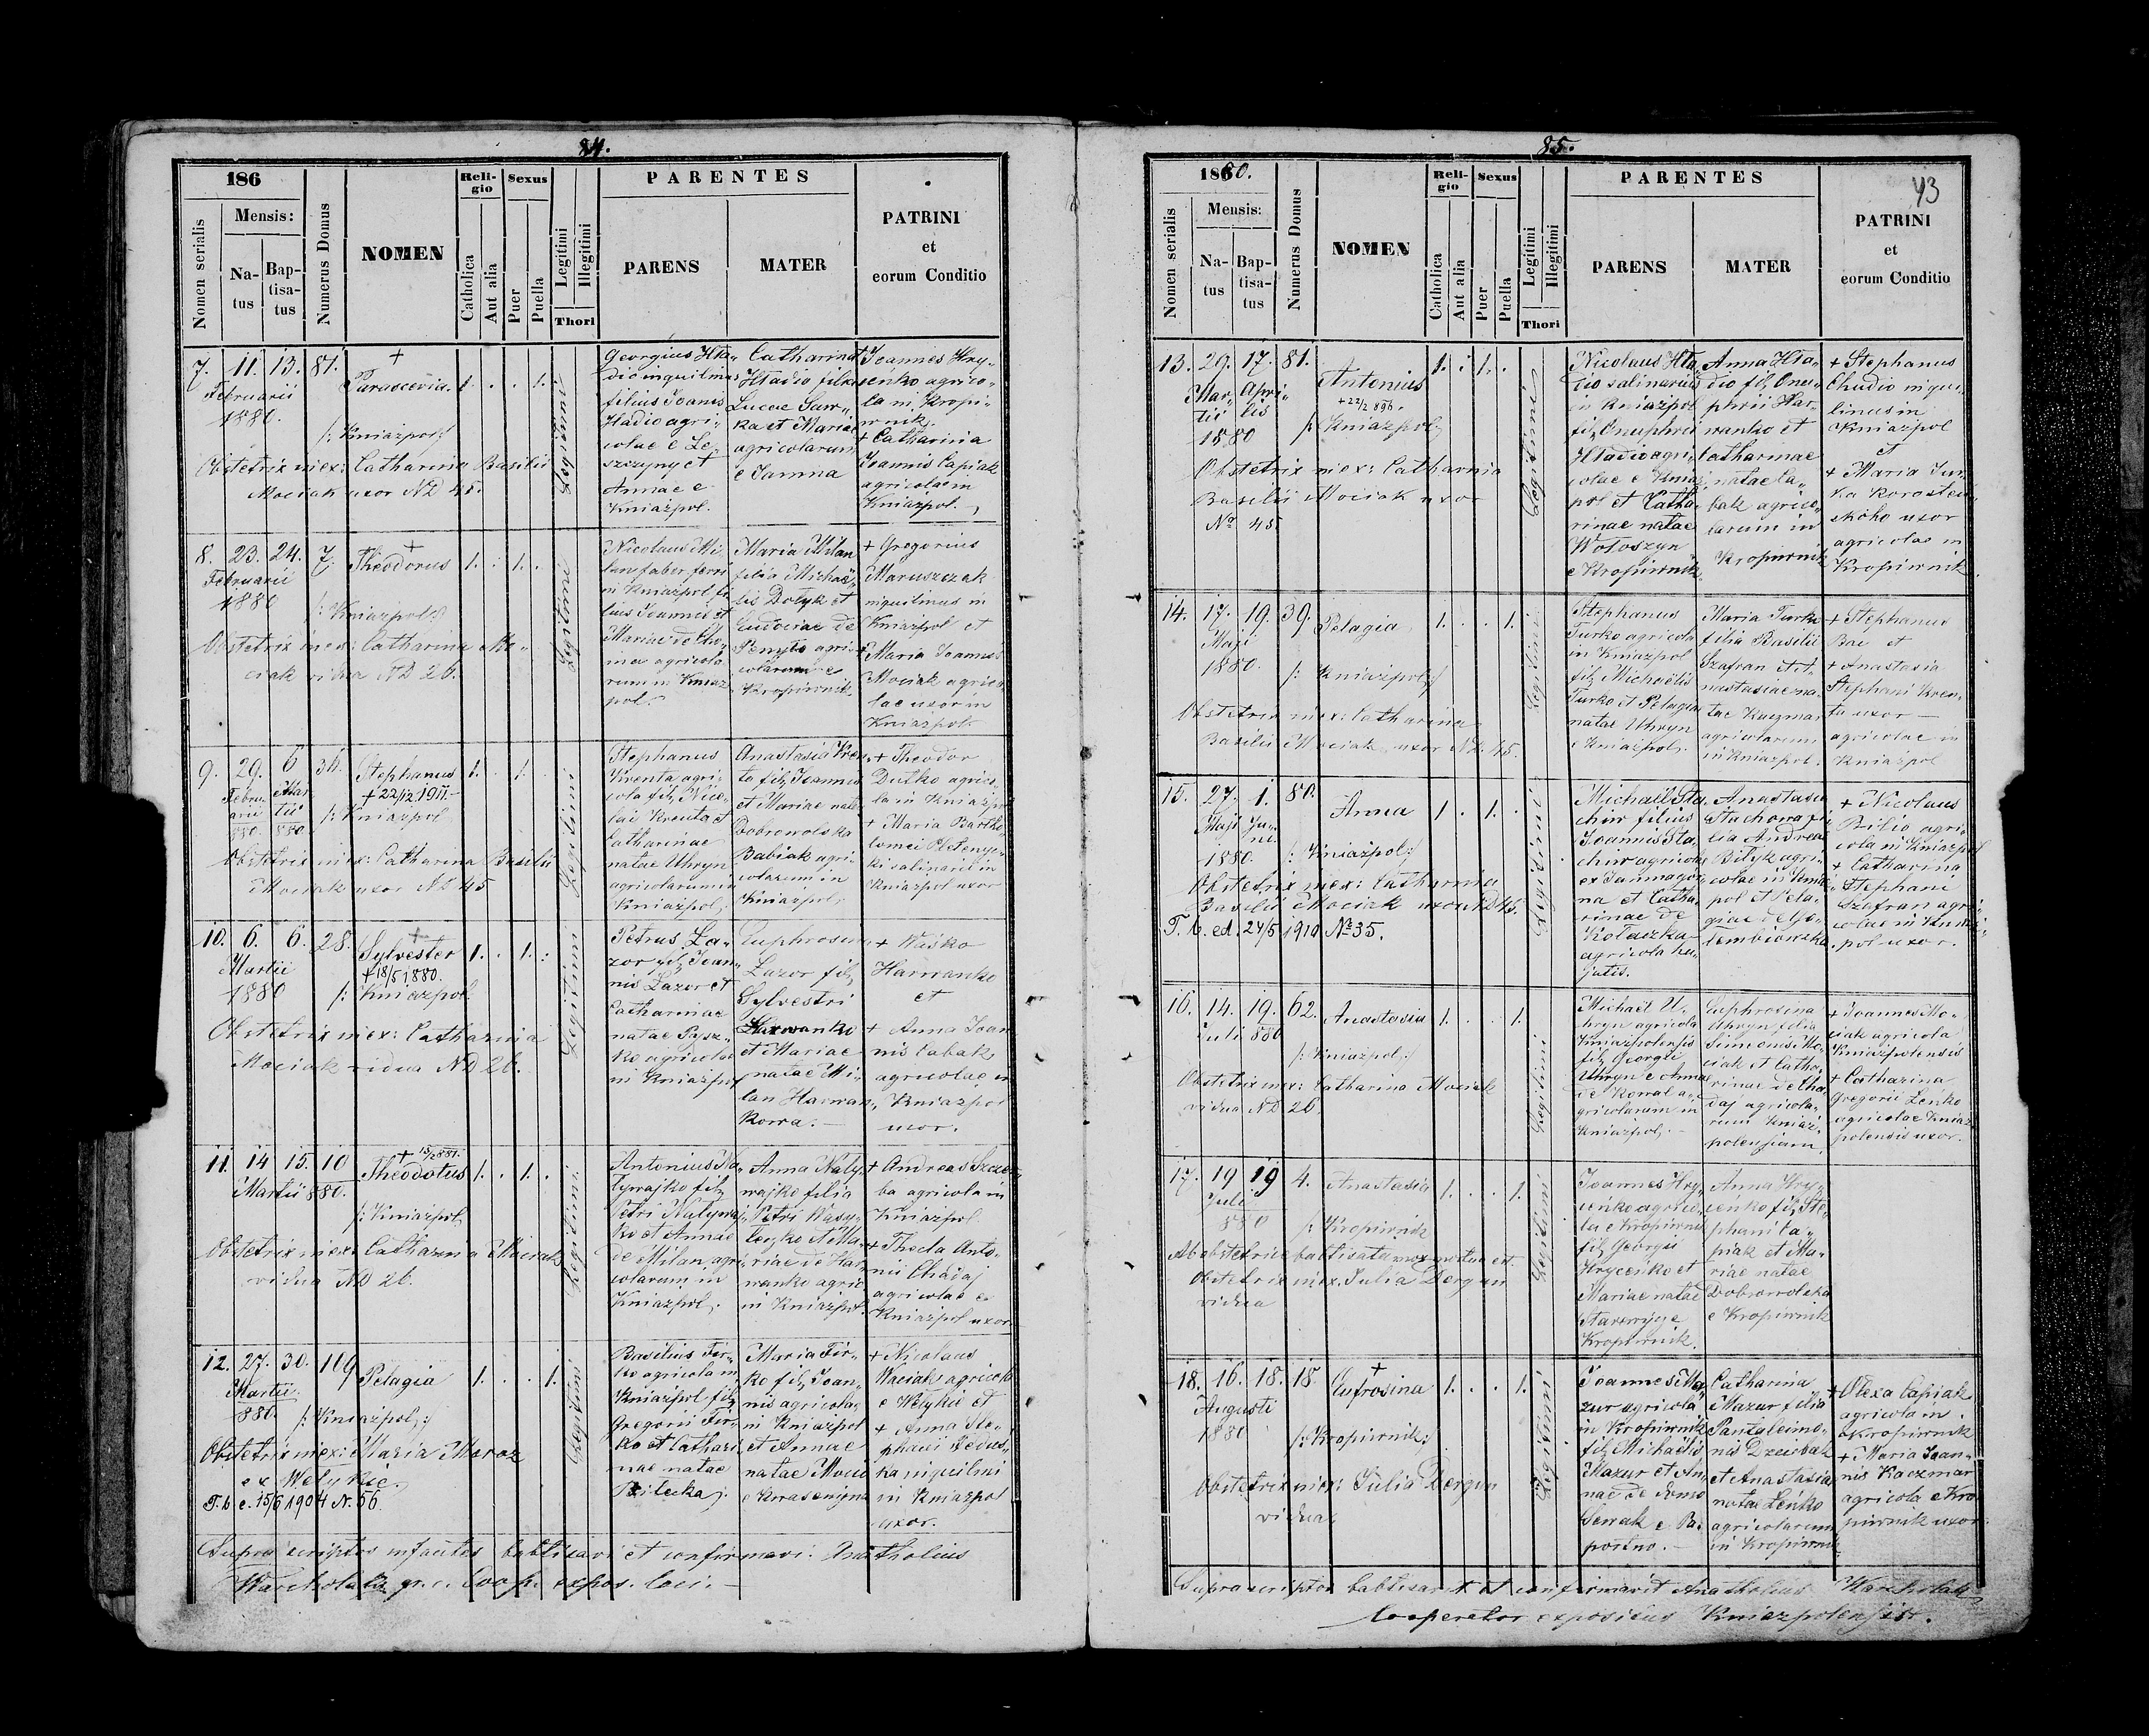 84.
186
Mensis:
Nomen serialis
Na-
tus
Bap-
tisa-
tus
Numerus Domus
NOMEN
Reli-
gio
Catholica
Aut alia
Sexus
Puer
Puella
Legitimi
Illegitimi
Thori
PARENTES
PARENS
MATER
PATRINI
et
eorum Conditio
7. 11. 13. 81.
Februarii
1880
+
Parascevia. 1. . . 1.
/: Kniazpol:/
Obstetrix n. ex: Catharina Basilii
Mociak uxor ND 45.
Legitimi
Georgius Hla„
dio inquilinus
filius Joannis
Hladio agri„
colae e Le„
szczyny et
Annae e
Kniazpol.
Catharina
Hladio filia
Lucae Saw„
ka et Mariae
agricolarum
e Jamna
+ Joannes Hry„
ćeńko agrico„
la in Kropi„
wnik.
+ Catharina
Joannis Capiak
agricolae in
Kniazpol.
8. 23. 24. 7.
Februarii
1880
+
Theodorus 1. . 1. .
/: Kniazpol:/
Obstetrix n. ex: Catharina Mo„
ciak vidua ND 26.
Legitimi
Nicolaus Mi„
lan faber ferri
in Kniazpol fi„
lius Joannis et
Mariae de
agricola„
rum in Kniaz„
pol.
Maria Milan
filia Michaë„
lis Dotyk et
Eudociae de
agri„
colarum e
Kropiwnik
+ Gregorius
Maruszczak
inquilinus in
Kniazpol et
+ Maria Joannis
Mociak agrico„
lae uxor in
Kniazpol
9. 29. 6 36.
Febru„
arii
880.
Mar„
tii
880.
Stephanus 1. . 1. .
+ 22/12 1911.
/: Kniazpol
Obstetrix n. ex: Catharina Basilii
Mociak uxor ND 45
Legitimi
Stephanus
Krenta agri„
cola fil. Nico„
lai Krenta et
Catharinae
natae Uhryn
agricolarum in
Kniazpol.
Anastasia Kren„
ta fil. Joannis
et Mariae natae
Dobrowolska
Babiak agri„
colarum in
Kniazpol,
+ Theodor
Dutko agrico„
la in Kniazpol
+ Maria Bartho„
lomei
ki salinarii in
Kniazpol uxor
10. 6. 6. 28.
Martii
1880
+
Sylvester 1. . 1. .
+ 18/5 1880.
/: Kniazpol
Obstetrix n. ex: Catharina
Mociak vidua ND 26.
Legitimi
Petrus La„
zor fil. Joan„
nis Lazor et
Catharinae
natae Pasz„
ko agricola
in Kniazpol
Euphrosina
Lazor fil.
Sylvestri
Harwanko
et Mariae
natae Mi„
lan Harwan„
kowa.
+ Waśko
Harwanko
et
+ Anna Joan
nis Cabak
agricolae in
Kniazpol
uxor.
11. 14 15. 10
Martii 880.
+ 13/2 881.
Theodotus 1. . 1. .
/: Kniazpol
Obstetrix n. ex: Catharina Mociak
vidua ND 26.
Legitimi
Antonius Na„
lywajko fil.
Petri Nalywaj„
ko et Annae
de Milan agri„
colarum in
Kniazpol.
Anna Naly„
wajko filia
Petri Wasy„
leczko et Ma„
riae de Har„
wanko agric
in Kniazpol
+ Andreas Szczer„
ba agricola in
Kniazpol
+ Thecla Anto„
nii Chadaj
agricolae e
Kniazpol uxor
12. 27. 30. 109
Martii
880.
Pelagia 1. . . 1.
/: Kniazpol:/
Obstetrix n. ex: Maria Moroz
ex Welykie.
T. b. e. 15/6 1904 N. 56.
Legitimi
Basilius Fir„
ko agricola in
Kniazpol fil.
Gregorii Fir„
ko et Cathari„
nae natae
Maria Fir„
ko fil. Joan„
nis agricola
in Kniazpol
et Annae
natae Moci
+ Nicolaus
Waciak agricola
e Welykie et
+ Anna Ste„
phani Fedus„
ka inquilini
in Kniazpol
uxor.
Supra scriptos infantes babtisavi et confirmavi: Anatholius
Warchola gr. c. Coop. expos. loci.
85.
43
1880.
Mensis:
Nomen serialis
Na-
tus
Bap-
tisa-
tus
Numerus Domus
NOMEN
Reli-
gio
Catholica
Aut alia
Sexus
Puer
Puella
Legitimi
Illegitimi
Thori
PARENTES
PARENS
MATER
PATRINI
et
eorum Conditio
13. 29. 17. 81.
Mar„
tii
Apri„
lis
1880
Antonius 1. . 1. .
+ 22/2 896.
/: Kniazpol:/
Obstetrix n. ex: Catharina
Basilii Mociak uxor
No 45.
Legitimi
Nicolaus Hla„
dio salinarius
in Kniazpol
fil. Onuphrii
Hladio agri„
colae e Kniaz„
pol et Catha„
rinae natae
Wołoszyn
e Kropiwnik
Anna Hla„
dio fil. Onu„
phrii Har„
wanko et
Catharinae
natae Ca„
bak agrico„
larum in
Kropiwnik
+ Stephanus
Chudio inqui„
linus in
Kniazpol
et
+ Maria Jur„
ka Korosteń„
skoho uxor
agricolae in
Kropiwnik.
14. 17. 19. 39.
Maji
1880.
Pelagia 1. . . 1.
/: Kniazpol:/
Obstetrix n. ex: Catharina
Basilii Mociak uxor ND. 45.
Legitimi
Stephanus
Turko agricola
in Kniazpol
fil. Michaëlis
Turko et Pelagiae
natae Uhryn
e Kniazpol.
Maria Turko
filia Basilii
Szafran et A„
nastasiae na„
tae Kaczmar
agricolarum
in Kniazpol.
+ Stephanus
Bac et
+ Anastasia
Stephani Kren„
ta uxor
agricolae in
Kniazpol
15. 27. 1. 80.
Maji Ju„
ni.
1880.
Anna 1. . 1. .
/: Kniazpol:/
Obstetrix n. ex: Catharina
Basilii Mociak uxor ND 45.
T. b. ed. 24/5 1910 No 35.
Legitimi
Michaël Sta„
chiw filius
Joannis Sta„
chiw agricola
ex Jamna gór„
na et Catha„
rinae de
Kołaczka
agricola ha„
jatis.
Anastasia
Stachowa fi„
lia Andreae
Bilyk agri„
colae in Kniaz„
pol et Pela„
giae de Go„
łembiowska.
+ Nicolaus
Bilio agri„
cola in Kniazpol
+ Catharina
Stephani
Szafran agri„
colae in Kniaz„
pol uxor.
16. 14. 19. 62.
Juli 880
Anastasia 1. . . 1.
/: Kniazpol:/
Obstetrix n. ex: Catharina Mociak
vidua ND 26.
Legitimi
Michaël U„
hryn agricola
Kniazpolensis
fil. Georgii
Uhryn e Anna
de Kowal a„
gricolarum in
Kniazpol.
Euphrosina
Uhryn filia
Simeonis Mo„
ciak et Catha„
rinae de Cha„
daj agricola„
rum Kniaz„
polensium.
+ Joannes Mo„
ciak agricola
Kniazpolensis
+ Catharina
Gregorii Lenko
agricolae Kniaz
polensis uxor.
17. 19 19 4.
Juli
880
Anastasia 1. . . 1.
/: Kropiwnik
Ab obstetrice babtisata mox mortua est.
Obstetrix n. ex. Julia Dergun
vidua
Legitimi
Joannes Hry„
ćeńko agrico„
la e Kropiwnik
fil. Georgii
Hryćeńko et
Mariae natae
e
Kropiwnik.
Anna Hry„
ćeńko fil. Ste„
phani Ca„
piak et Ma„
riae natae
Dobrowolska
e Kropiwnik
18. 16. 18. 18
Augusti
1880
+
Eufrosina 1. . . 1.
/: Kropiwnik:/
Obstetrix n. ex: Julia Dergun
vidua
Legitimi
Joannes Ma„
zur agricola
in Kropiwnik
fil. Michaëlis
Mazur et An„
nae de
e Pa„
portno.
Catharina
Mazur filia
Pantaleimo„
nis Dziubak
et Anastasia
natae Leńko
agricolarum
in Kropiwnik
+ Olexa Capiak
agricola in
Kropiwnik
+ Maria Joan„
nis Kaczmar
agricola e Kro„
piwnik uxor.
Suprascriptos babtisavit et confirmavit Anatholius Warchola
Cooperator expositus Kniazpolensis.